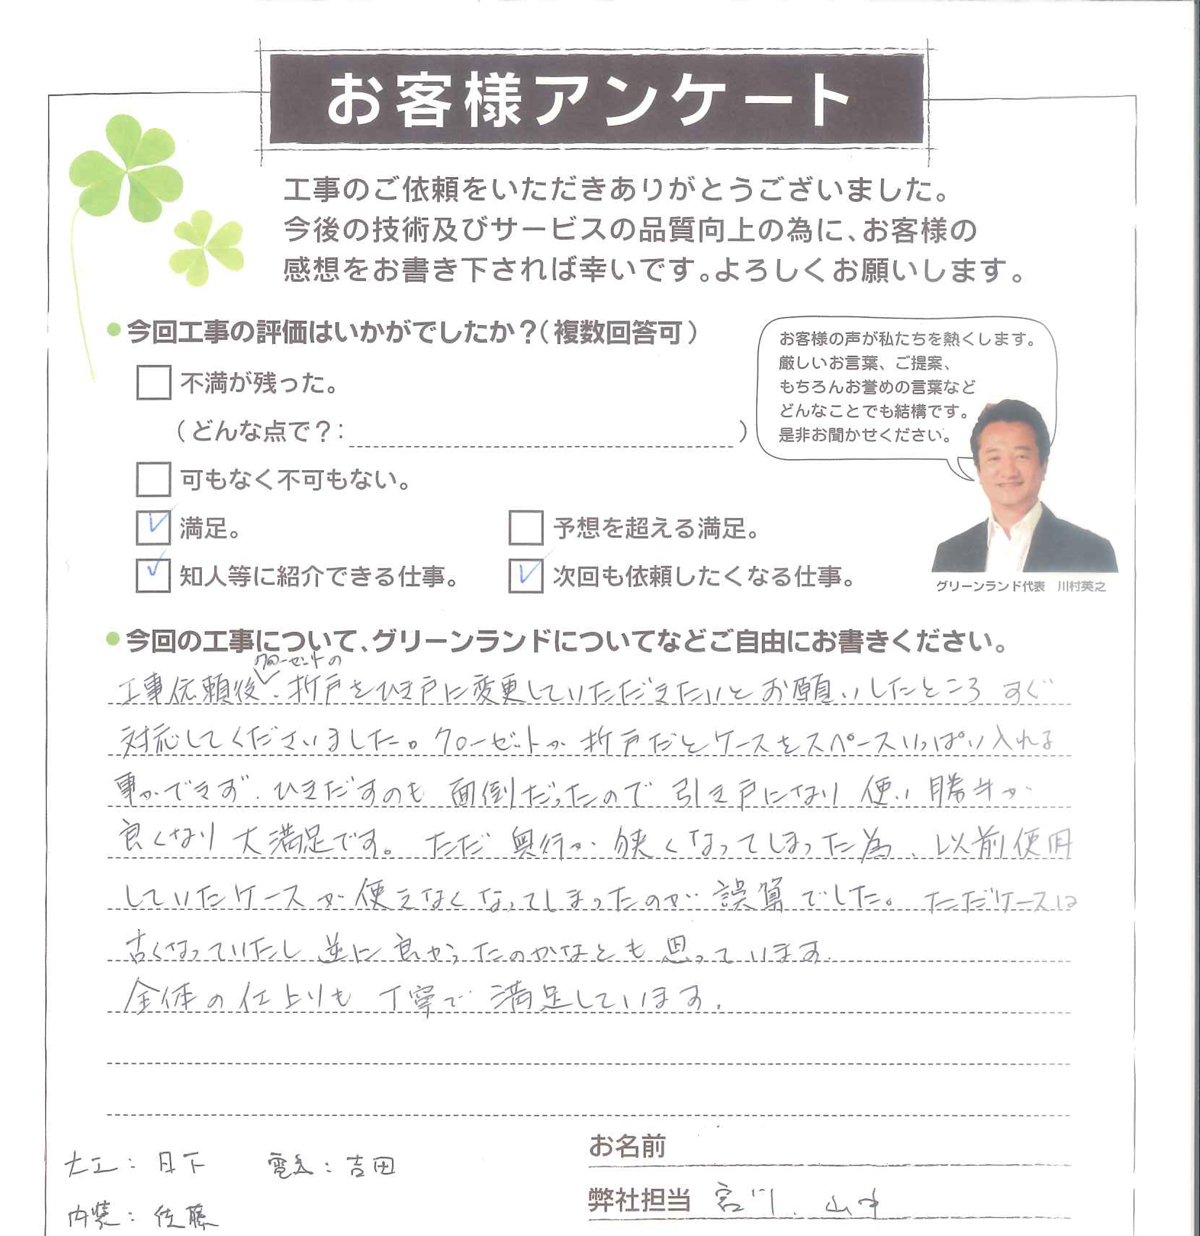 お客様アンケート
工事のご依頼をいただきありがとうございました。
今後の技術及びサービスの品質向上の為に、お客様の
感想をお書き下されば幸いです。よろしくお願いします。
今回工事の評価はいかがでしたか？(複数回答可)
不満が残った。
(どんな点で？: )
可もなく不可もない。
満足。
予想を超える満足。
知人等に紹介できる仕事。
次回も依頼したくなる仕事。
お客様の声が私たちを熱くします。
厳しいお言葉、ご提案、
もちろんお誉めの言葉など
どんなことでも結構です。
是非お聞かせください。
グリーンランド代表 川村英之
今回の工事について、グリーンランドについてなどご自由にお書きください。
クローゼットの
工事依頼後、折戸をひき戸に変更していただきたいとお願いしたところ すぐ
対応してくださいました。クローゼットが折戸だとケースをスペースいっぱい入れる
事ができず、ひきだすのも面倒だったので引き戸になり 使い勝手が
良くなり 大満足です。ただ 奥行が狭くなってしまった為、以前使用
していたケースが使えなくなってしまったのが誤算でした。ただケースは
古くなっていたし 逆に良かったのかなとも思っています。
全体の仕上りも 丁寧で 満足しています。
お名前
弊社担当 宮川、山中
大工: 日下 電気: 吉田
内装: 佐藤